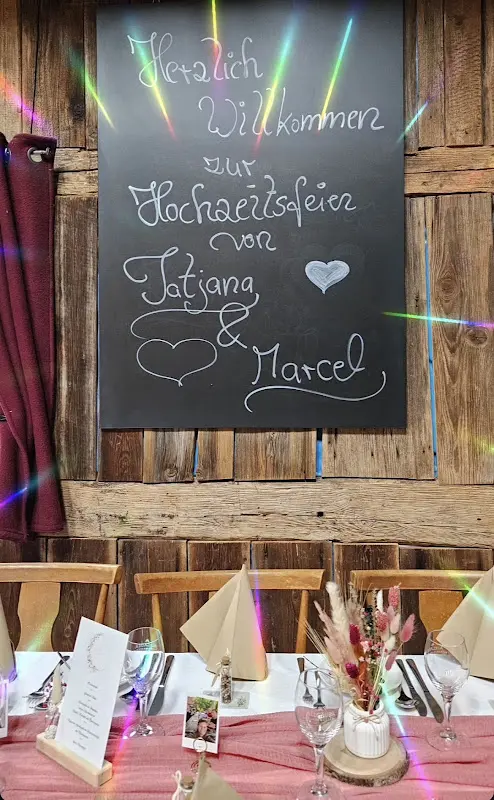 Herzlich
Willkommen
zur
Hochzeitsfeier
von
Tatjana
&
Marcel